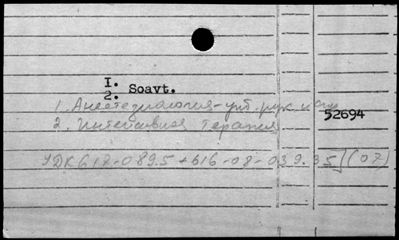 I.
2. Soavt.
1. Анестезиология - уч. рук. и
52694
2. Интенсивная терапия
УДК 617-089.5+616-08-039.35](07)